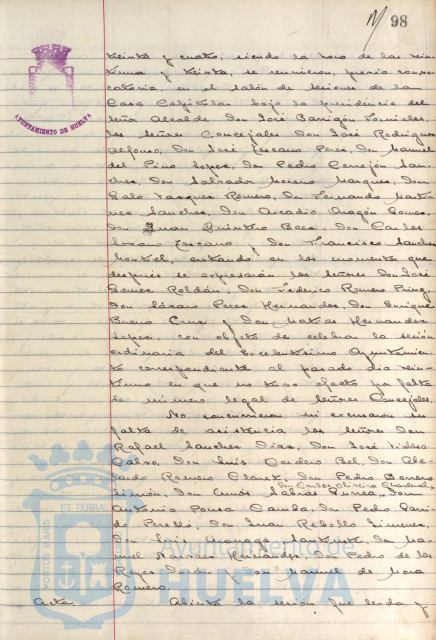 98
AYUNTAMIENTO DE HUELVA
treinta y cuatro, siendo la hora de las vein-
tiuna y treinta, se reunieron, previa convo-
catoria, en el salón de sesiones de la
Casa Capitular bajo la presidencia del
Señor Alcalde Don José Barrigón
los señores Concejales Don José Rodríguez
Alfonso, Don José Lozano Perez, Don Manuel
del Pino Lopez, Don Pedro Cerrejón San-
chez, Don Salvador Moreno Marquez, Don
Galo Vazquez Romero, Don Fernando Marti-
nez Sanchez, Don Arcadio Aragón Gomez,
Don Juan Quintero Baez, Don Carlos
Lozano y Don Francisco Sanchez
entrando en los momentos que
después se expresarán los señores Don José
Gomez Roldán, Don Federico Romero
Don Lázaro Perez Hernandez, Don Enrique
Bueno Cruz y Don Matias Hernandez
Lopez, con objeto de celebrar la sesión
ordinaria del Excelentísimo Ayuntamien-
to correspondiente al pasado día vein-
tiuno en que no tuvo efecto por falta
de número legal de señores Concejales.
No concurrieron ni excusaron su
falta de asistencia los señores Don
Rafael Sanchez Diaz, Don José
Calvo, Don Luis Cordero Bel, Don Abe-
lardo Romero Claret, Don Pedro Borrero
Don Carlos Oliveira Chardenal,
Limón, Don Amós Sabrás Gurrea, Don
Antonio Pousa Camba, Don Pedro Garri-
do Perelló, Don Juan Rebollo Jimenez,
Don Ma-
nuel Navarro Hernandez, Don Pedro de los
Reyes y Don Manuel de Mora
Romero.
Acta. Abierta la sesión fue leida y
PORTUS MARIS ET TERRAE
Ayuntamiento de
HUELVA